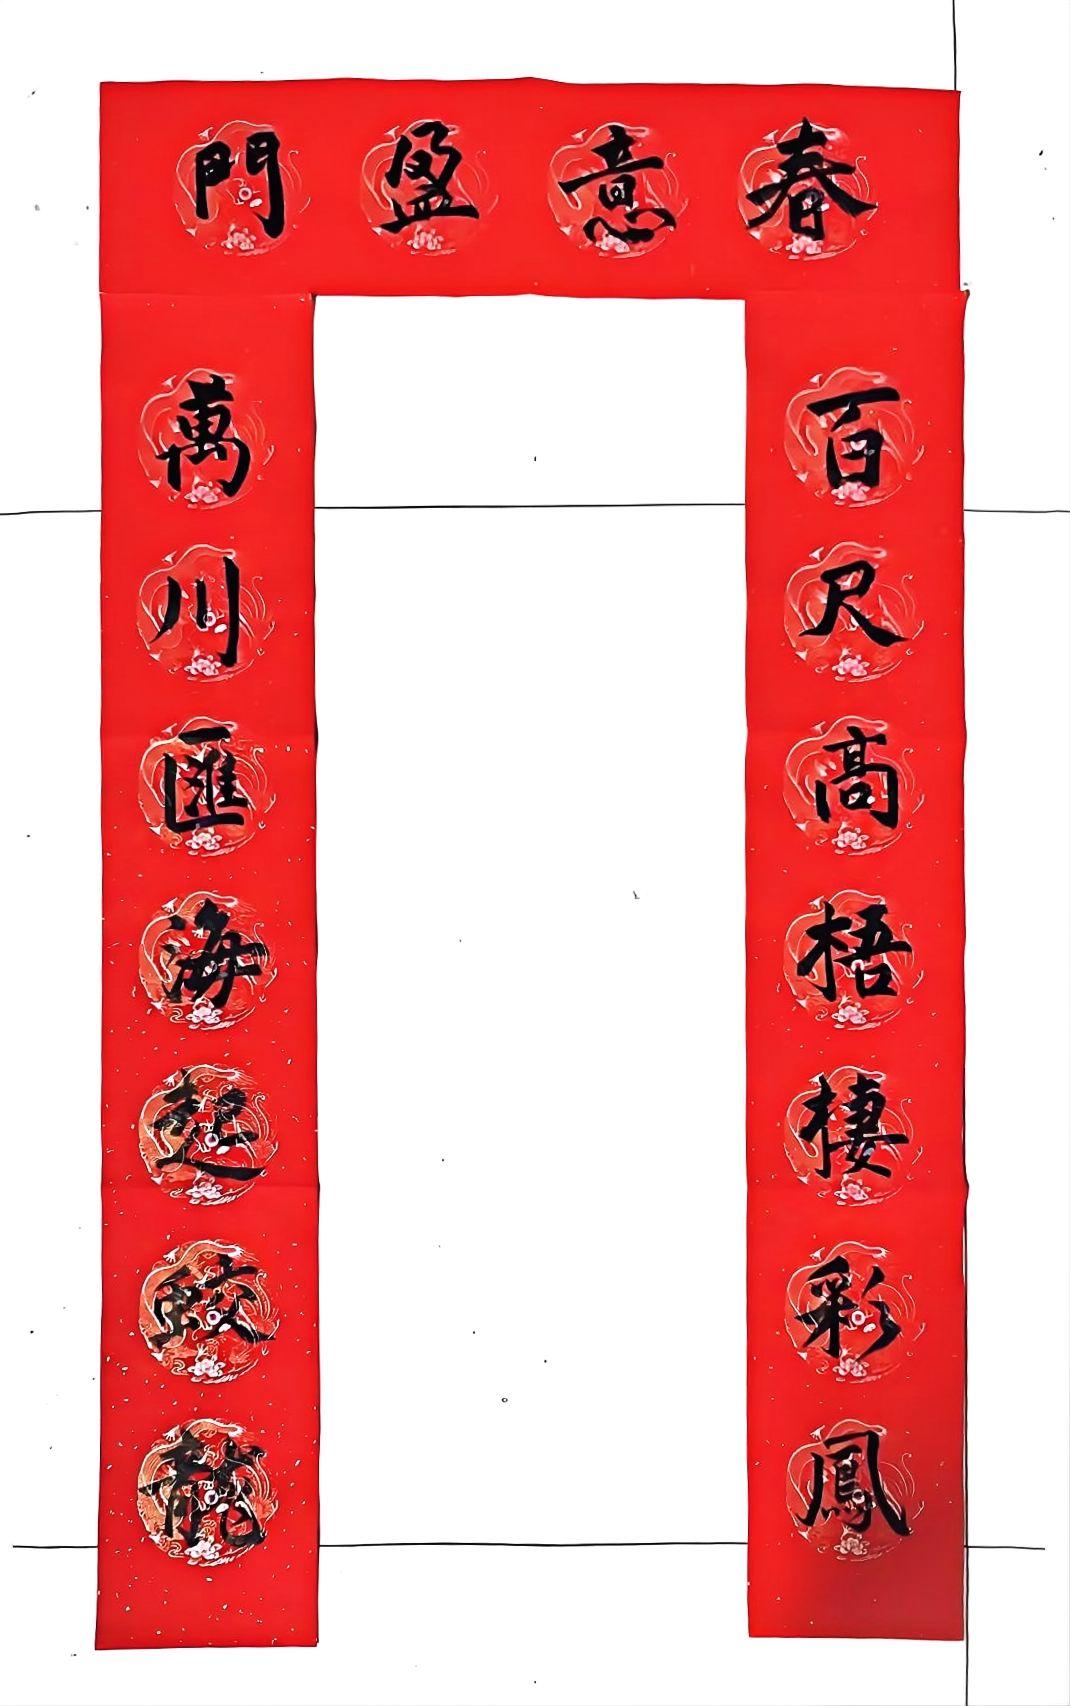 春意盈門
百尺高梧棲彩鳳
萬川匯海起蛟龍